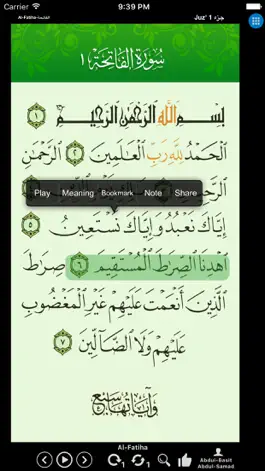 Carrier 9:39 PM
Al-Fatiha الفاتحة Juz' 1 جزء
سُورَةُ الفَاتِحَة ١
بِسْمِ اللَّهِ الرَّحْمَٰنِ الرَّحِيمِ ١
الْحَمْدُ لِلَّهِ رَبِّ الْعَالَمِينَ ٢ الرَّحْمَٰنِ
الرَّحِيمِ
Play Meaning Bookmark Note Share
إِيَّاكَ نَعْبُدُ وَإِيَّاكَ نَسْتَعِينُ
٥ اهْدِنَا الصِّرَاطَ الْمُسْتَقِيمَ ٦ صِرَاطَ
الَّذِينَ أَنْعَمْتَ عَلَيْهِمْ غَيْرِ الْمَغْضُوبِ
عَلَيْهِمْ وَلَا الضَّالِّينَ ٧
وَآيَاتُهَا سَبْعٌ
Al-Fatiha
1
Abdul-Basit
Abdul-Samad